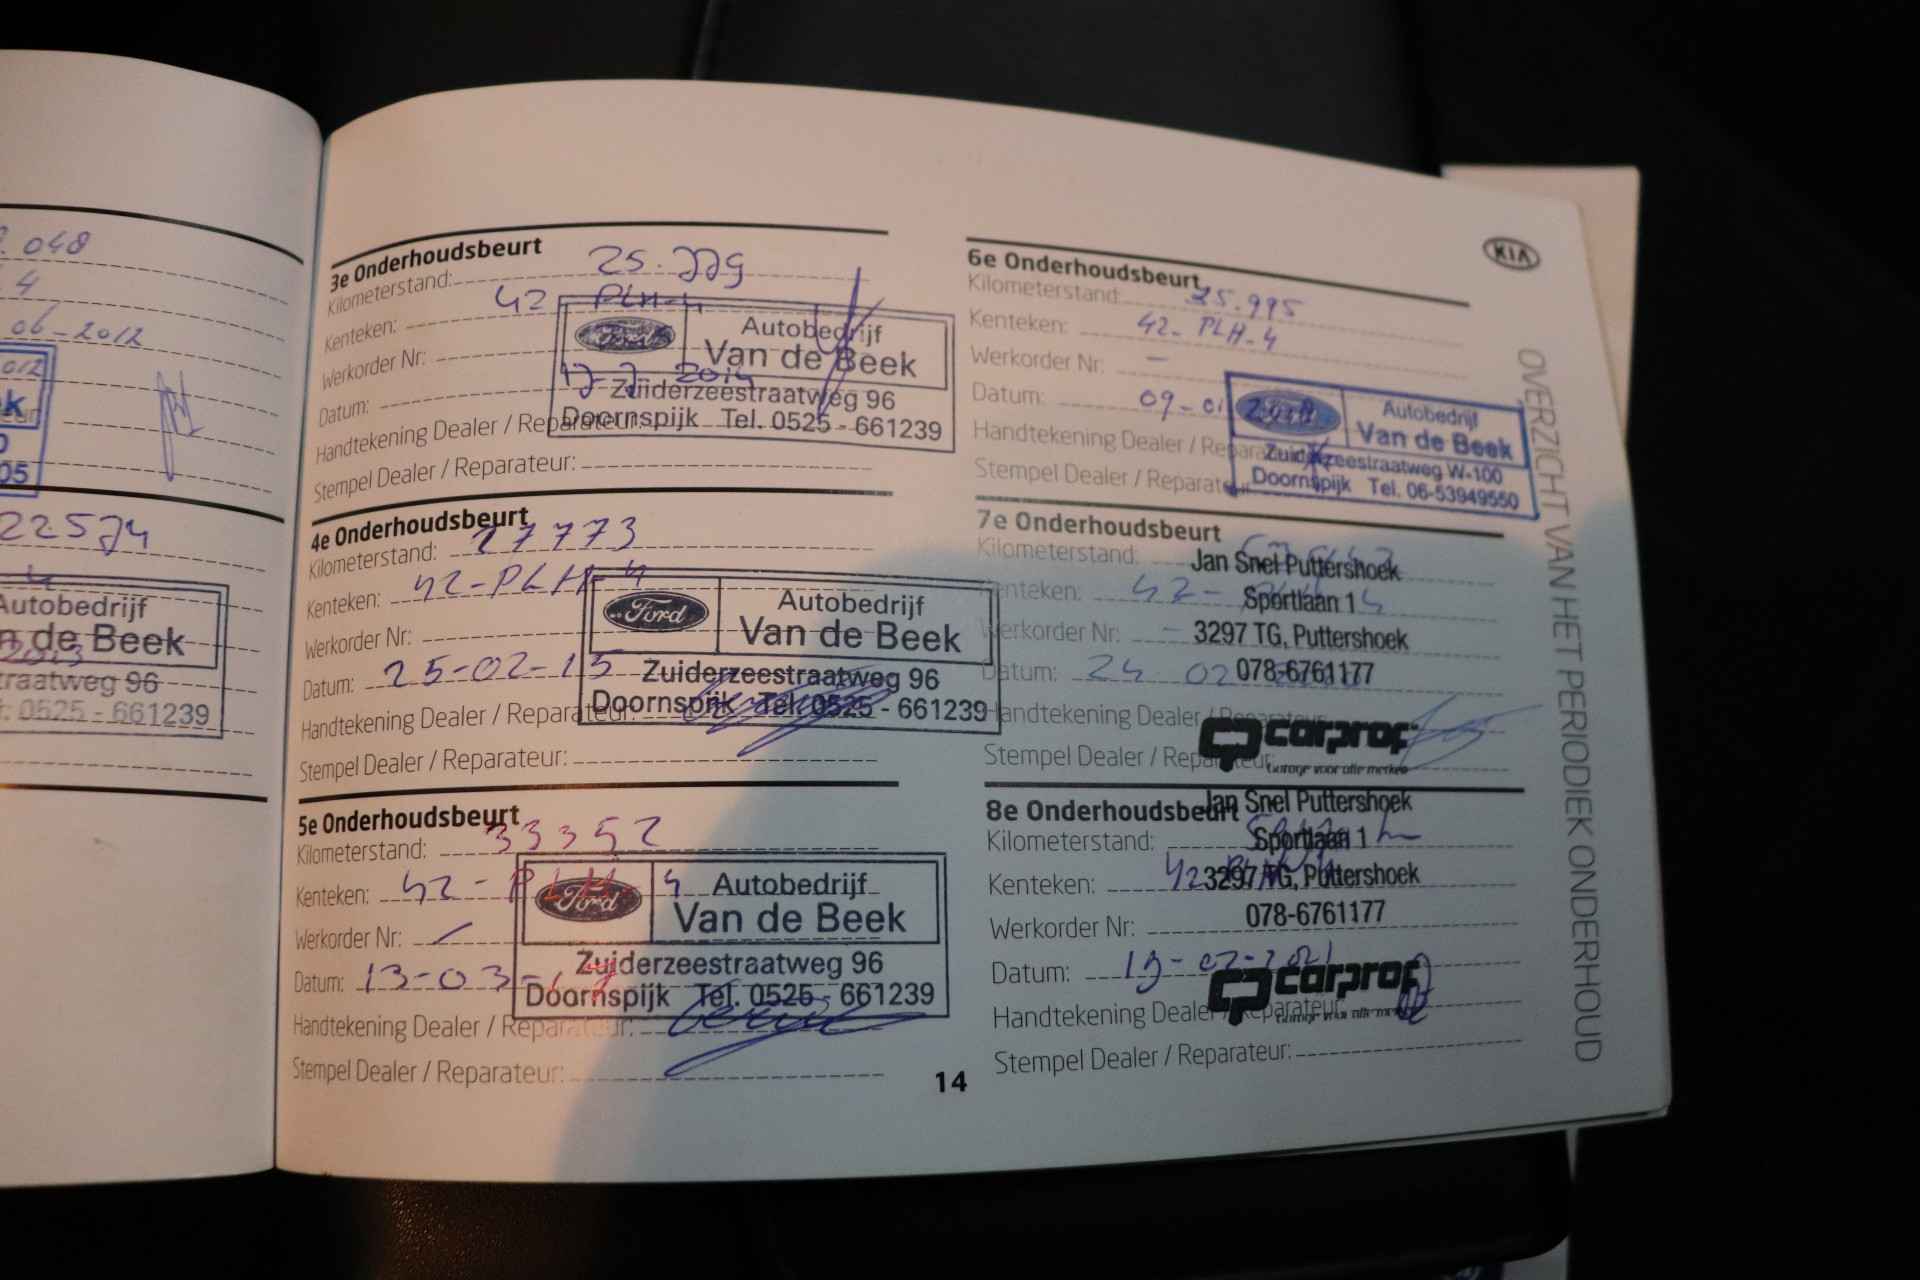 048
4
06-2012
012
k
05
22574
4
Autobedrijf
de Beek
2013
raatweg 96
0525 - 661239
3e Onderhoudsbeurt
Kilometerstand: 25.779
Kenteken: 42 PLH-4
Werkorder Nr:
Datum: 2014
Handtekening Dealer / Reparateur:
Stempel Dealer / Reparateur:
Ford
Autobedrijf
Van de Beek
Zuiderzeestraatweg 96
Doornspijk Tel. 0525 - 661239
4e Onderhoudsbeurt
Kilometerstand: 27773
Kenteken: 42-PLH-4
Werkorder Nr:
Datum: 25-02-15
Handtekening Dealer / Reparateur:
Stempel Dealer / Reparateur:
Ford
Autobedrijf
Van de Beek
Zuiderzeestraatweg 96
Doornspijk Tel. 0525 - 661239
5e Onderhoudsbeurt
Kilometerstand: 33352
Kenteken: 42-PLH 4
Werkorder Nr: /
Datum: 13-03-17
Handtekening Dealer / Reparateur:
Stempel Dealer / Reparateur:
Ford
Autobedrijf
Van de Beek
Zuiderzeestraatweg 96
Doornspijk Tel. 0525 - 661239
6e Onderhoudsbeurt
Kilometerstand: 25.995
Kenteken: 42-PLH-4
Werkorder Nr: -
Datum: 09-01
Handtekening Dealer / Reparateur
Stempel Dealer / Reparateur
Autobedrijf
Van de Beek
Zuiderzeestraatweg W-100
Doornspijk Tel. 06-53949550
7e Onderhoudsbeurt
Kilometerstand:
Kenteken: 42-
Werkorder Nr: -
Datum: 24 02
Handtekening Dealer / Reparateur
Stempel Dealer / Reparateur:
Jan Snel Puttershoek
Sportlaan 1
3297 TG, Puttershoek
078-6761177
carprof
Garage voor alle merken
8e Onderhoudsbeurt
Kilometerstand:
Kenteken: 42
Werkorder Nr:
Datum: 19-02-2021
Handtekening Dealer / Reparateur:
Stempel Dealer / Reparateur:
Jan Snel Puttershoek
Sportlaan 1
3297 TG, Puttershoek
078-6761177
carprof
Garage voor alle merken
14
KIA
OVERZICHT VAN HET PERIODIEK ONDERHOUD